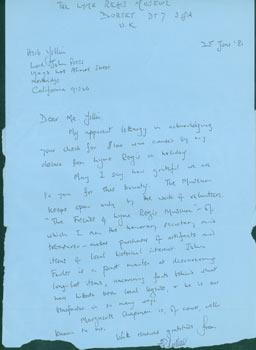 THE LYME REGIS MUSEUM
DORSET DT7 3QA
U.K.
25 June '81
Herb Yellin
Lord John Press
Northridge
California 91326
Dear Mr. Yellin,
My apparent lethargy in acknowledging
your check for $100 was caused by my
absence from Lyme Regis on holiday.
May I say how grateful we are
to you for this bounty. The Museum
keeps open only by the work of volunteers.
"The Friends of Lyme Regis Museum" - of
which I am the honorary secretary and
treasurer - makes purchases of artifacts and
items of local historical interest. John
Fowles is a past master at discovering
long-lost items, uncovering facts behind what
has hitherto been local legend & he is our
benefactor in so many ways.
Marguerite Chapman is, of course, well
known to me.
With renewed gratitude from